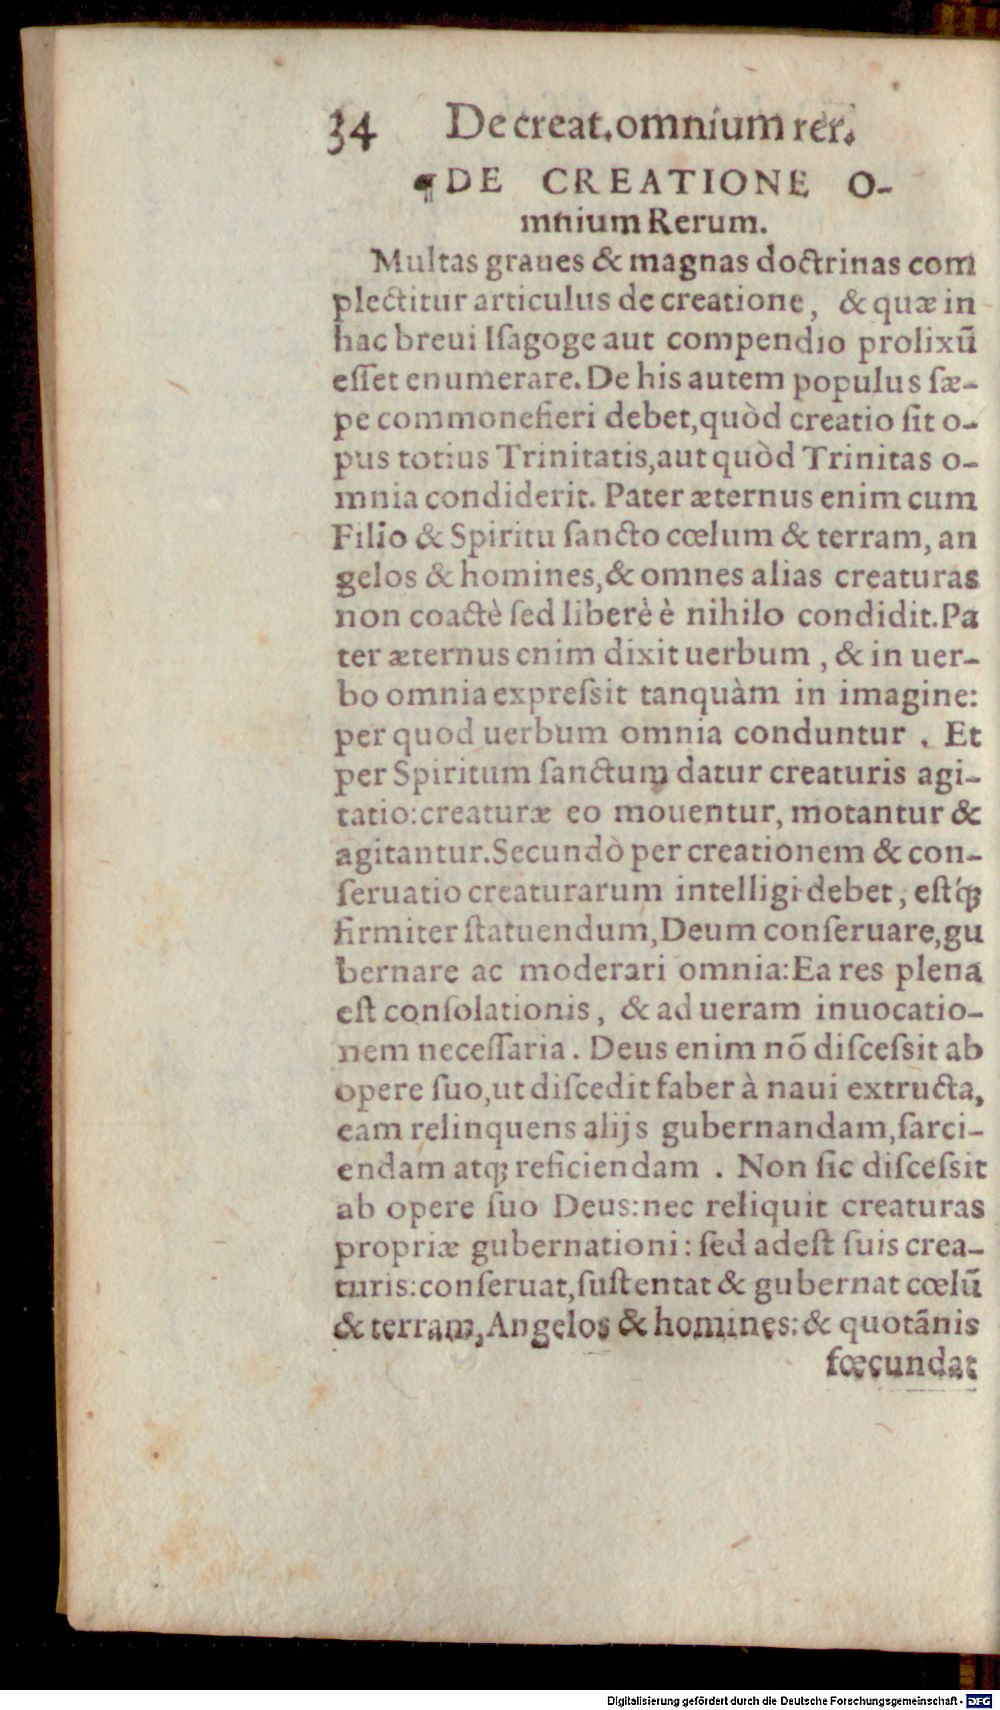 34 De creat. omnium rer.
¶DE CREATIONE O-
mnium Rerum.
Multas graues & magnas doctrinas com
plectitur articulus de creatione, & quæ in
hac breui Iſagoge aut compendio prolixũ
eſſet enumerare. De his autem populus ſæ-
pe commonefieri debet, quòd creatio ſit o-
pus totius Trinitatis, aut quòd Trinitas o-
mnia condiderit. Pater æternus enim cum
Filio & Spiritu ſancto cœlum & terram, an
gelos & homines, & omnes alias creaturas
non coactè ſed liberè è nihilo condidit. Pa
ter æternus enim dixit uerbum, & in uer-
bo omnia expreſsit tanquàm in imagine:
per quod uerbum omnia conduntur. Et
per Spiritum ſanctum datur creaturis agi-
tatio: creaturæ eo mouentur, motantur &
agitantur. Secundò per creationem & con-
ſeruatio creaturarum intelligi debet, eſtq́ꝫ
firmiter ſtatuendum, Deum conſeruare, gu
bernare ac moderari omnia: Ea res plena
eſt conſolationis, & ad ueram inuocatio-
nem neceſſaria. Deus enim nõ diſceſsit ab
opere ſuo, ut diſcedit faber à naui extructa,
eam relinquens alijs gubernandam, ſarci-
endam atqꝫ reficiendam. Non ſic diſceſsit
ab opere ſuo Deus: nec reliquit creaturas
propriæ gubernationi: ſed adeſt ſuis crea-
turis: conſeruat, ſuſtentat & gubernat cœlũ
& terram, Angelos & homines: & quotãnis
fœcundat
Digitalisierung gefördert durch die Deutsche Forschungsgemeinschaft - DFG